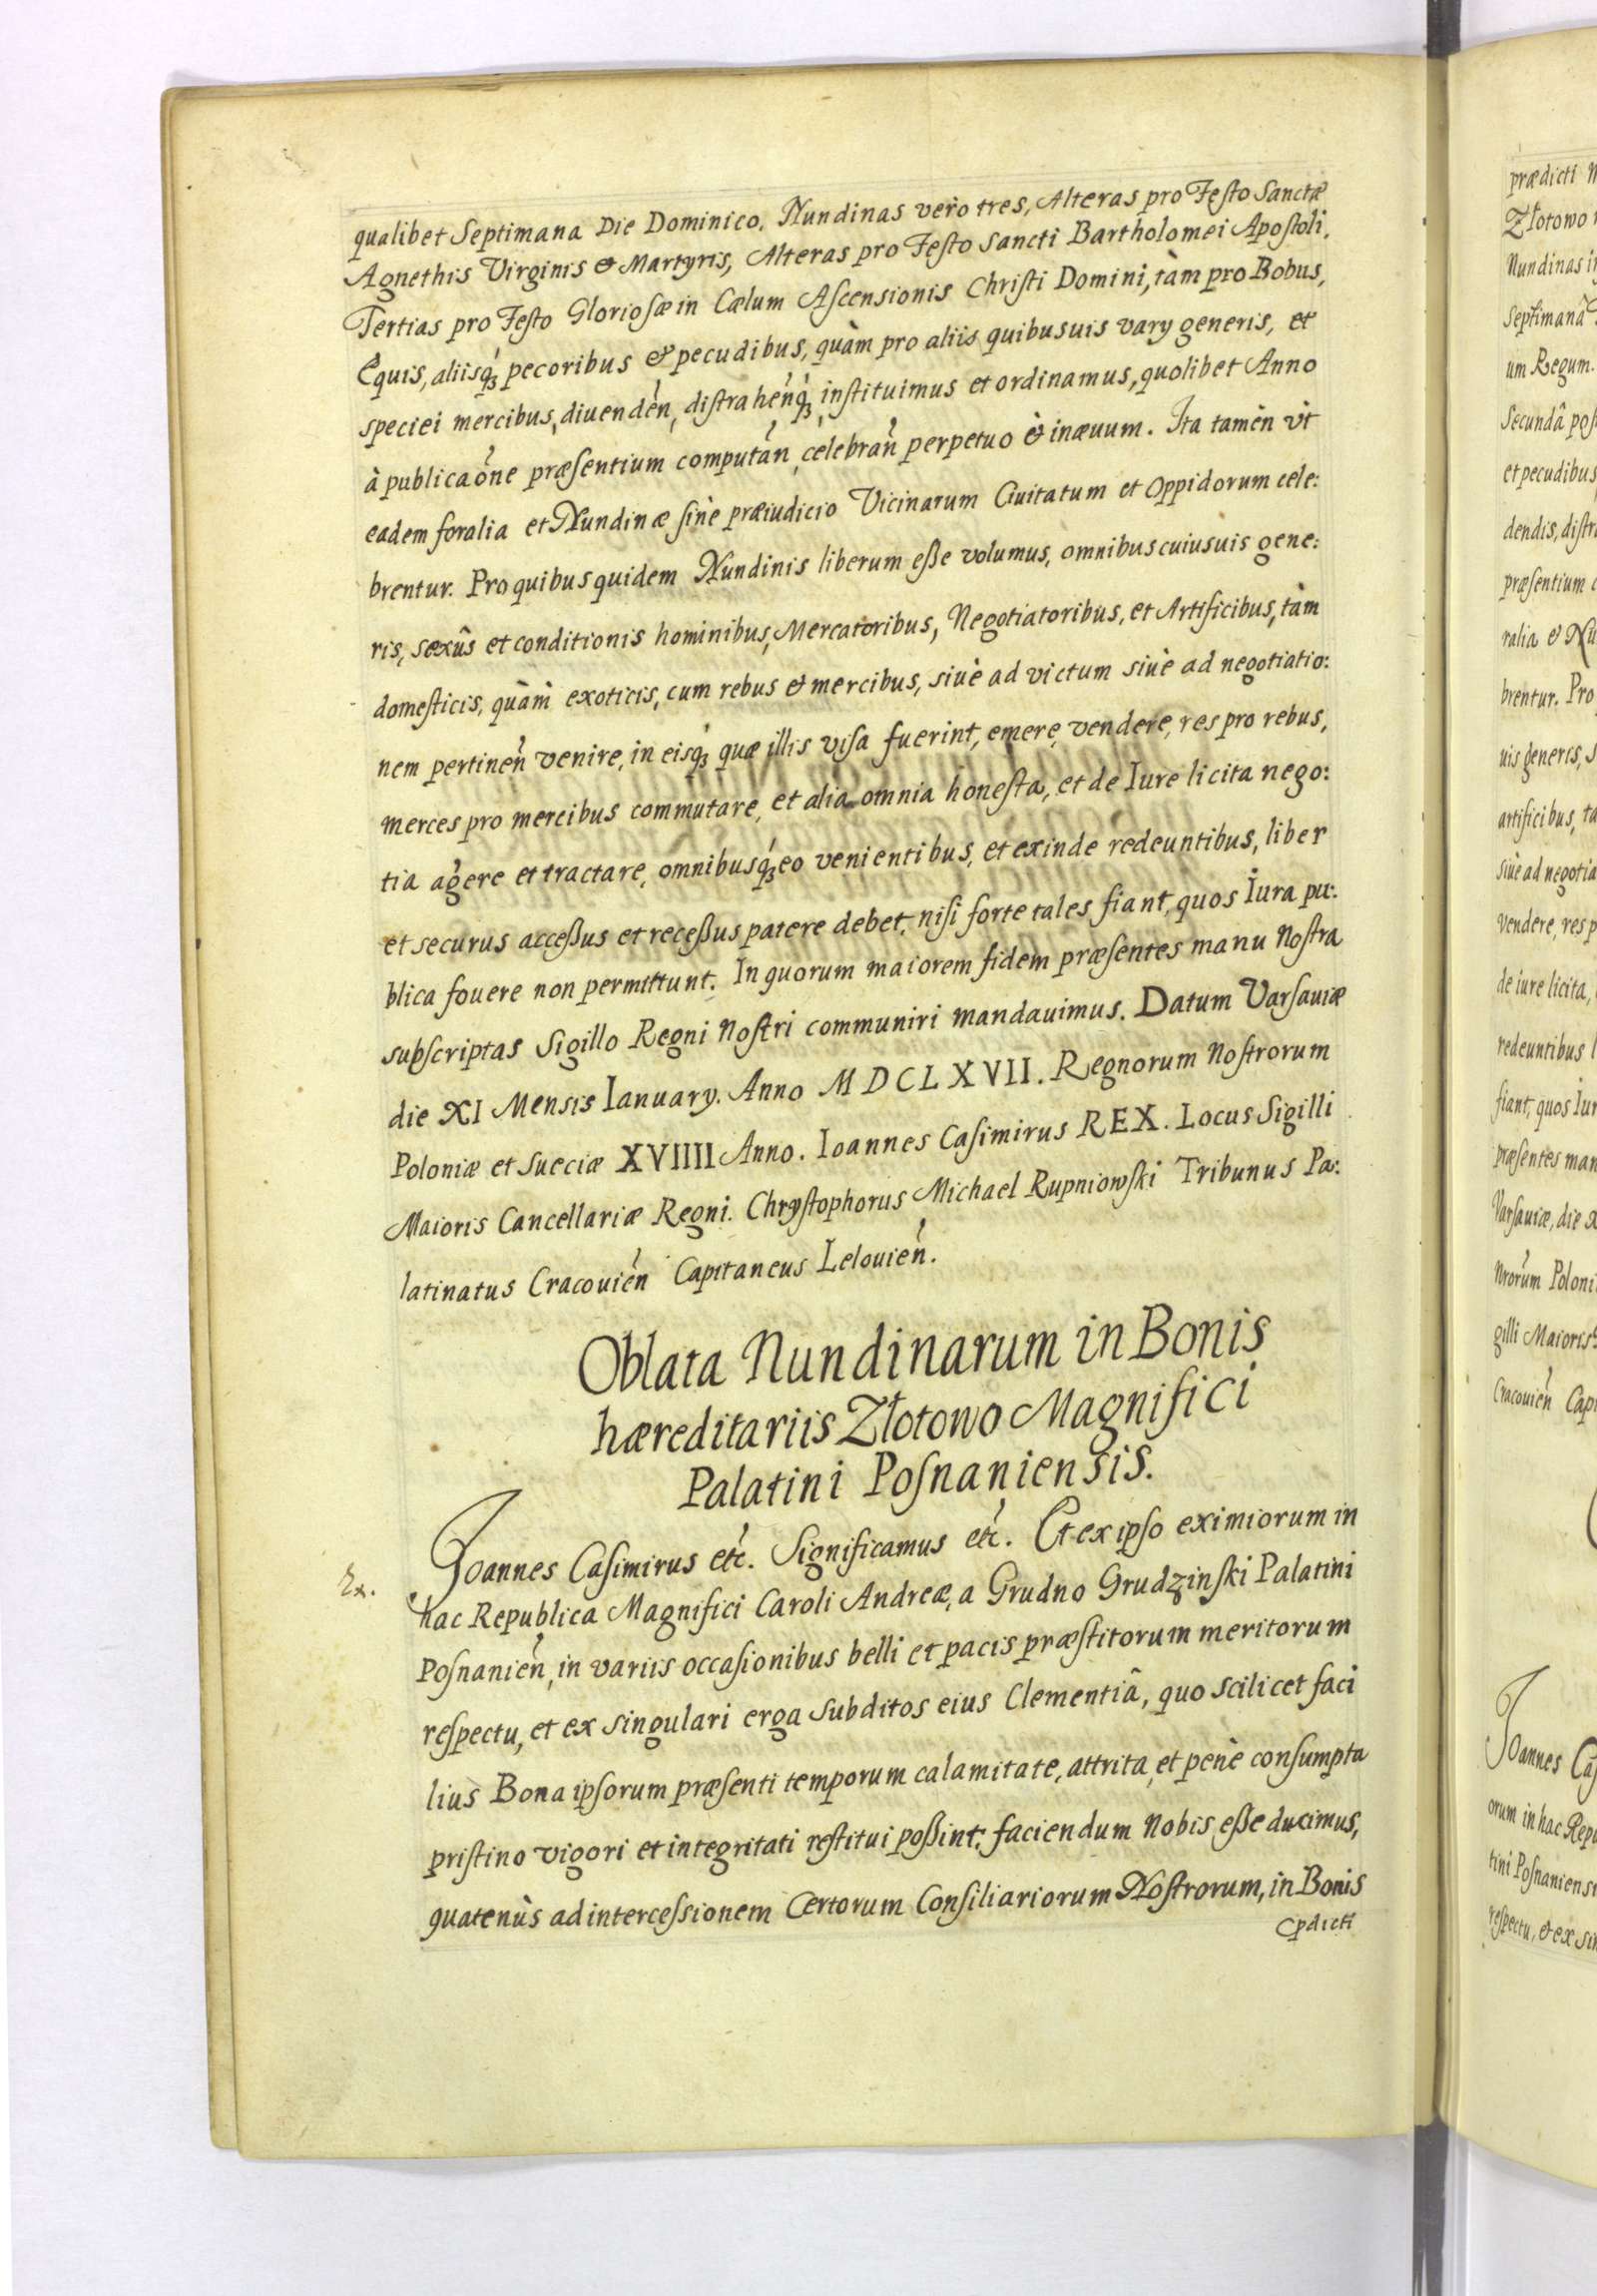 qualibet Septimana Die Dominico. Nundinas vero tres, Alteras pro Festo Sanctæ
Agnethis Virginis & Martyris, Alteras pro Festo Sancti Bartholomei Apostoli.
Tertias pro Festo Gloriosæ in Cælum Ascensionis Christi Domini, tàm pro Bobus,
Equis, aliisq́ꝫ pecoribus & pecudibus, quàm pro aliis quibusuis vary generis, et
speciei mercibus, diuendeń, distraheńq́ꝫ instituimus et ordinamus, quolibet Anno
à publicaońe præsentium computań, celebrań perpetuo & inæuum. Ita tamèn vt
eadem foralia et Nundinæ sinè præiudicio Vicinarum Ciuitatum et Oppidorum cele:
brentur. Pro quibus quidem Nundinis liberum eße volumus, omnibus cuiusuis gene:
ris, sexûs et conditionis hominibus, Mercatoribus, Negotiatoribus, et Artificibus, tàm
domesticis, quàm exoticis, cum rebus & mercibus, siuè ad victum siuè ad negotiatio:
nem pertineń venire, in eisq́ꝫ quæ illis visa fuerint, emere, vendere, res pro rebus,
merces pro mercibus commutare, et alia omnia honesta, et de Iure licita nego:
tia agere et tractare, omnibusq́ꝫ eo venientibus, et exinde redeuntibus, liber
et securus acceßus et receßus patere debet, nisi forte tales fiant, quos Iura pu:
blica fouere non permittunt. In quorum maiorem fidem præsentes manu Nostra
subscriptas Sigillo Regni Nostri communiri mandauimus. Datum Varsauiæ
die XI Mensis Ianuary. Anno MDCLXVII. Regnorum Nostrorum
Poloniæ et Sueciæ XVIIII Anno. Ioannes Casimirus REX. Locus Sigilli
Maioris Cancellariæ Regni. Chrystophorus Michael Rupniowski Tribunus Pa:
latinatus Cracouień Capitaneus Lelouień.
Oblata Nundinarum in Bonis
hæreditariis Złotowo Magnifici
Palatini Posnaniensis.
Ioannes Casimirus etć. Significamus etć. Et ex ipso eximiorum in
hac Republica Magnifici Caroli Andreæ, a Grudno Grudzinski Palatini
Posnanień, in variis occasionibus belli et pacis præstitorum meritorum
respectu, et ex singulari erga subditos eius Clementiâ, quo scilicet faci
lius Bona ipsorum præsenti temporum calamitate, attrita, et penè consumpta
pristino vigori et integritati restitui poßint; faciendum Nobis eße duximus,
quatenùs ad intercessionem Certorum Consiliariorum Nostrorum, in Bonis
prædicti
Złotowo
Nundinas
Septimanâ
um Regum.
Secundâ
et pecudibus
dendis,
præsentium
ralia &
brentur. Pro
uis generis,
artificibus,
siuè ad
vendere, res
de iure licita,
redeuntibus
fiant, quos
præsentes
Varsauiæ, die
Nrorum
gilli Maioris
Cracouień
Ioannes
orum in hac
tini
respectu, & ex